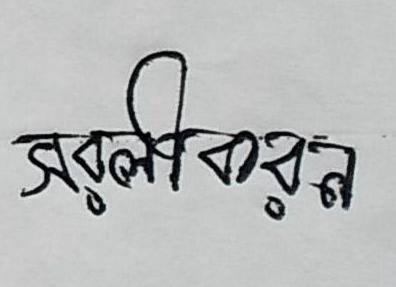 সরলীকরন